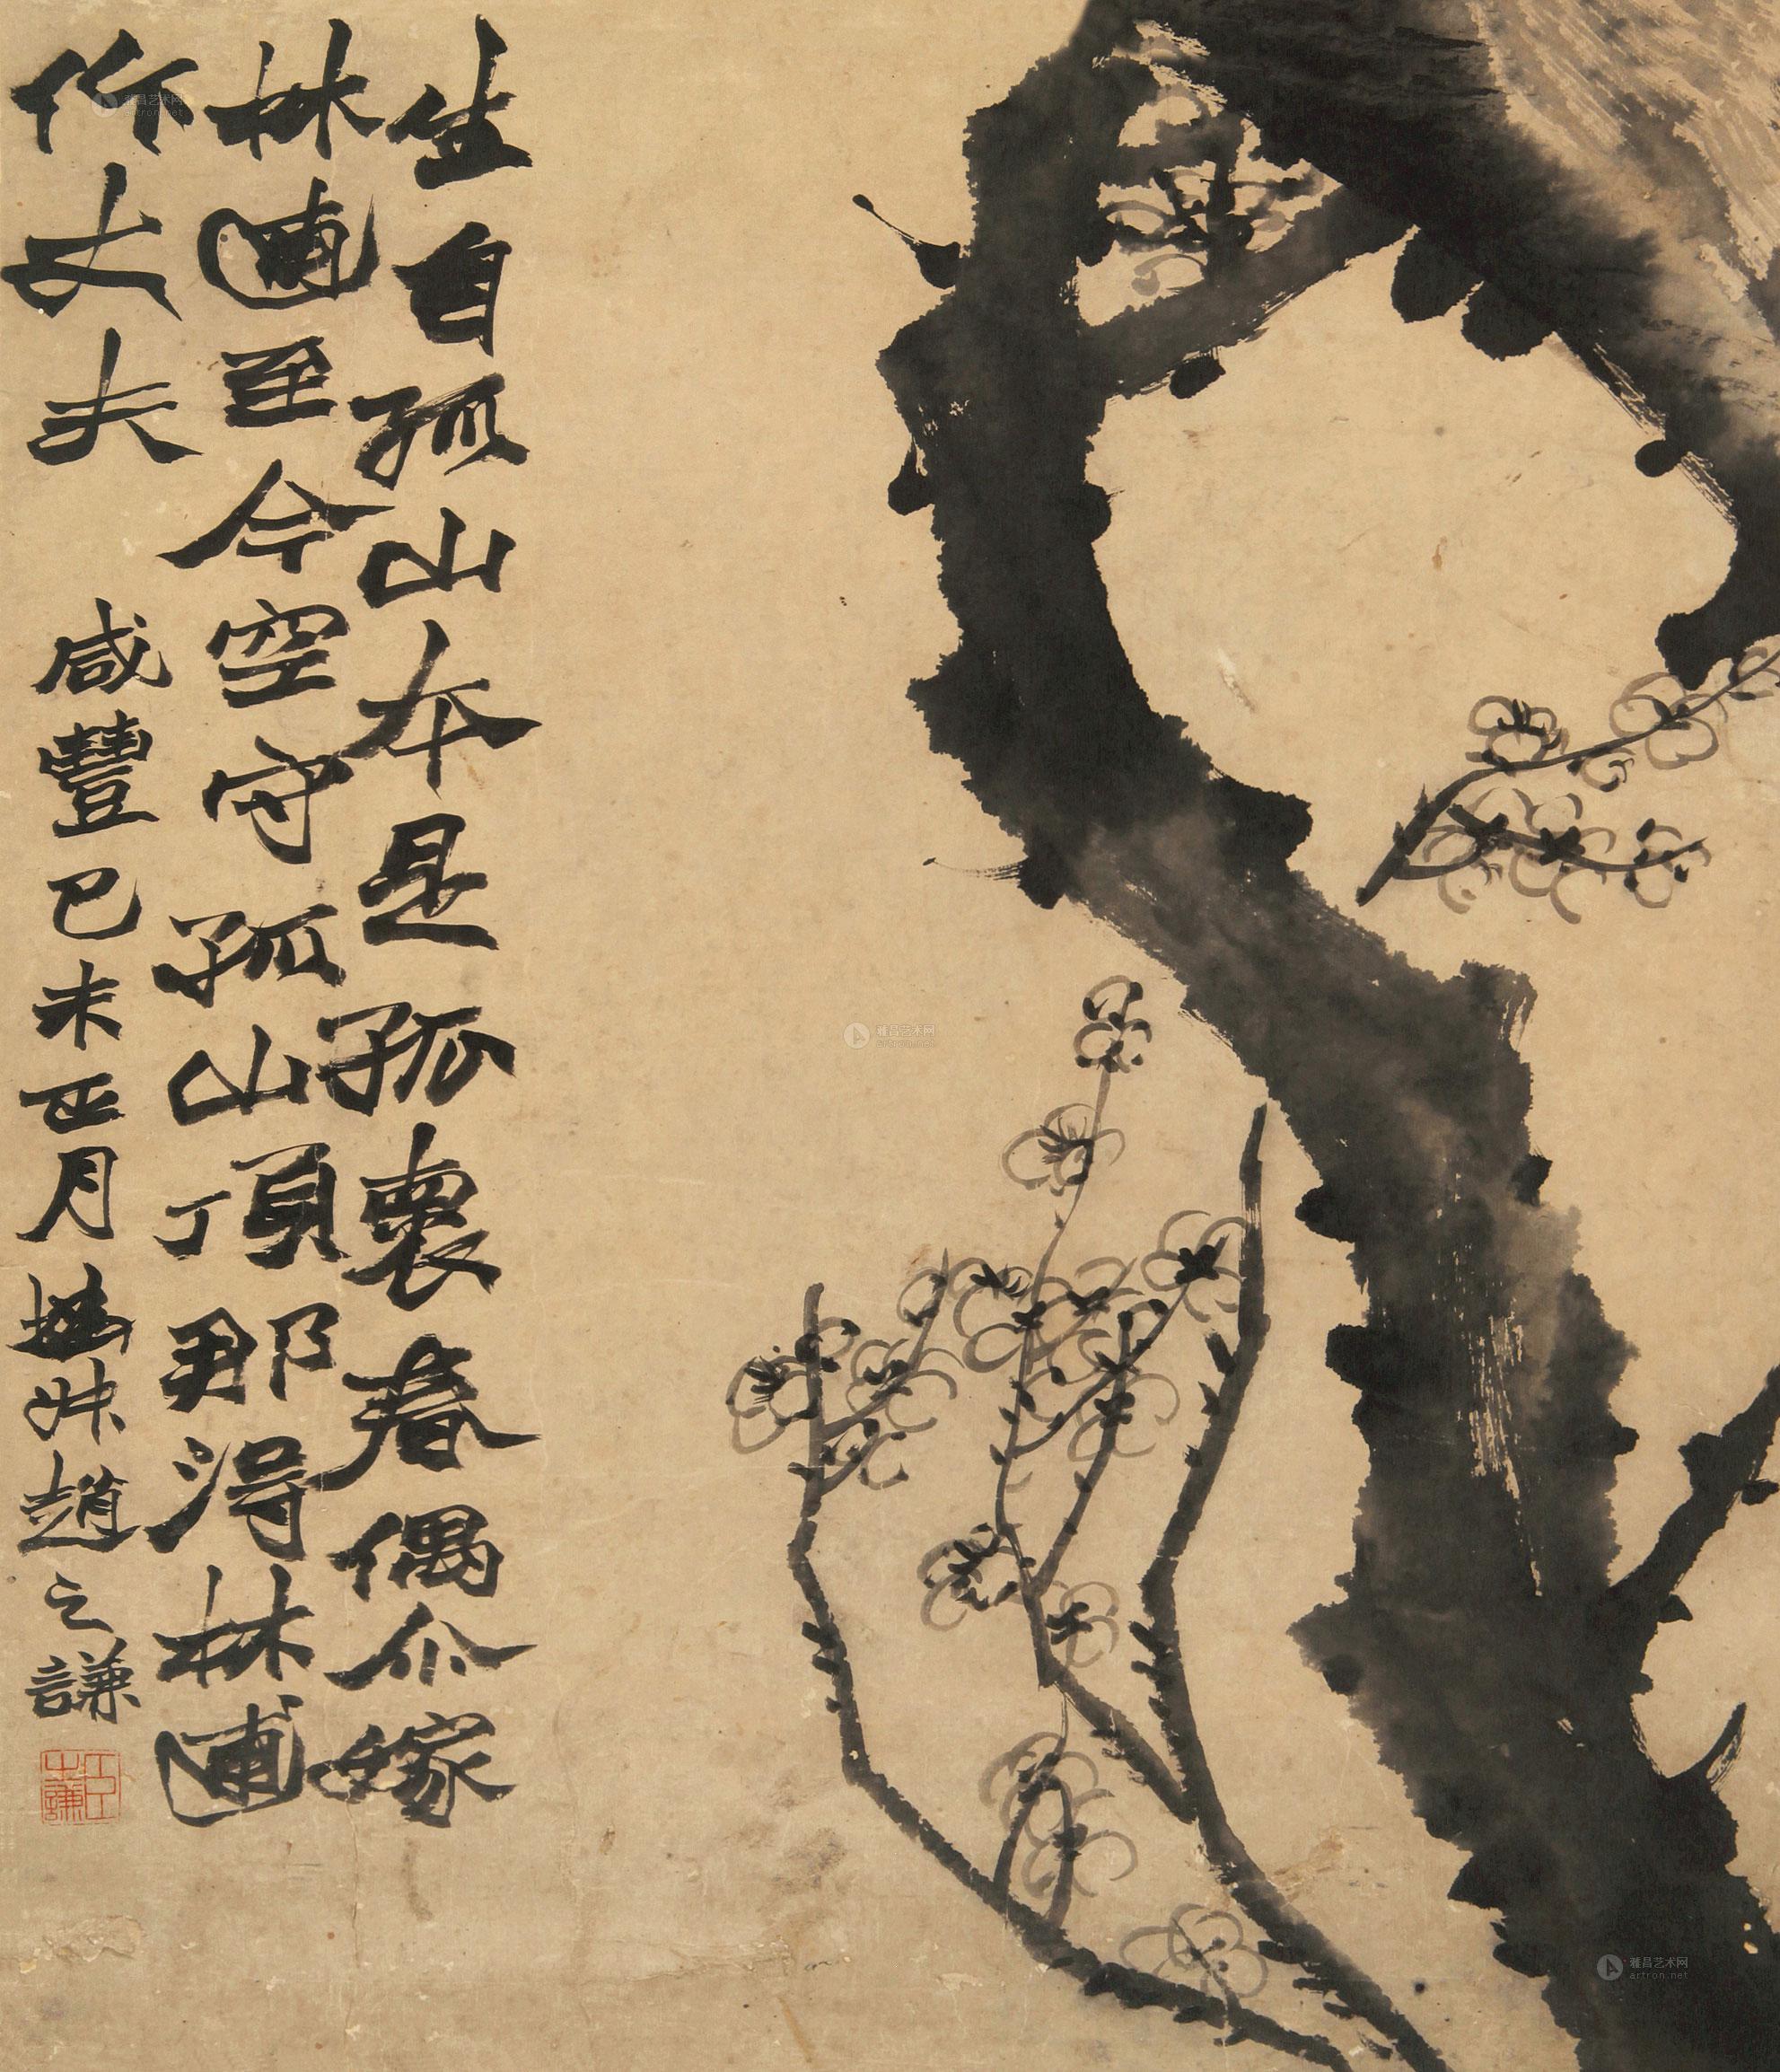 生自孤山本是孤裹春偶尒嫁
林逋至今空守孤山頂那得林逋
作丈夫
咸豐己未正月撝叔趙之謙
臣之謙
雅昌艺术网
artron.net
雅昌艺术网
artron.net
雅昌艺术网
artron.net